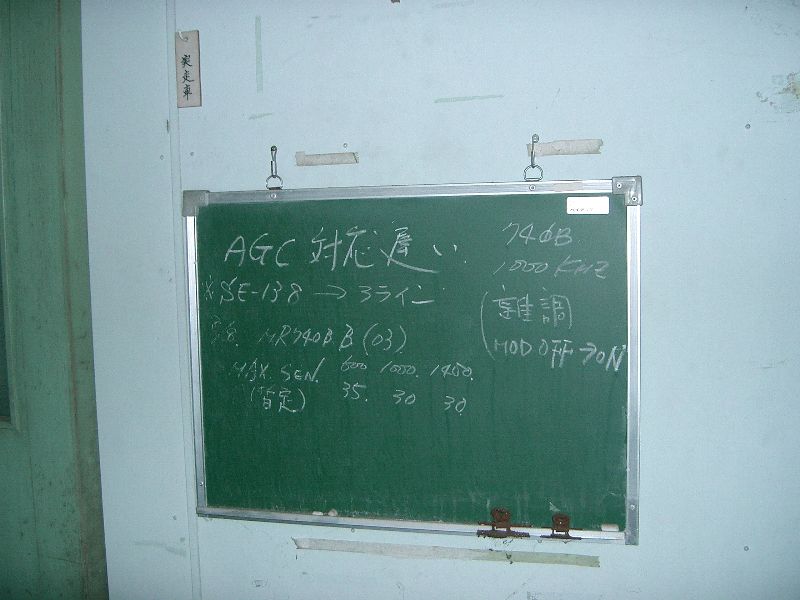 AGC 対応遅い
※SE-138 → 3ライン
MR740B B (03)
MAX. SEN. 600 1000. 1400.
(暫定) 35. 30 30
74dB
1000 KHZ
(離調
MOD OFF→ON)